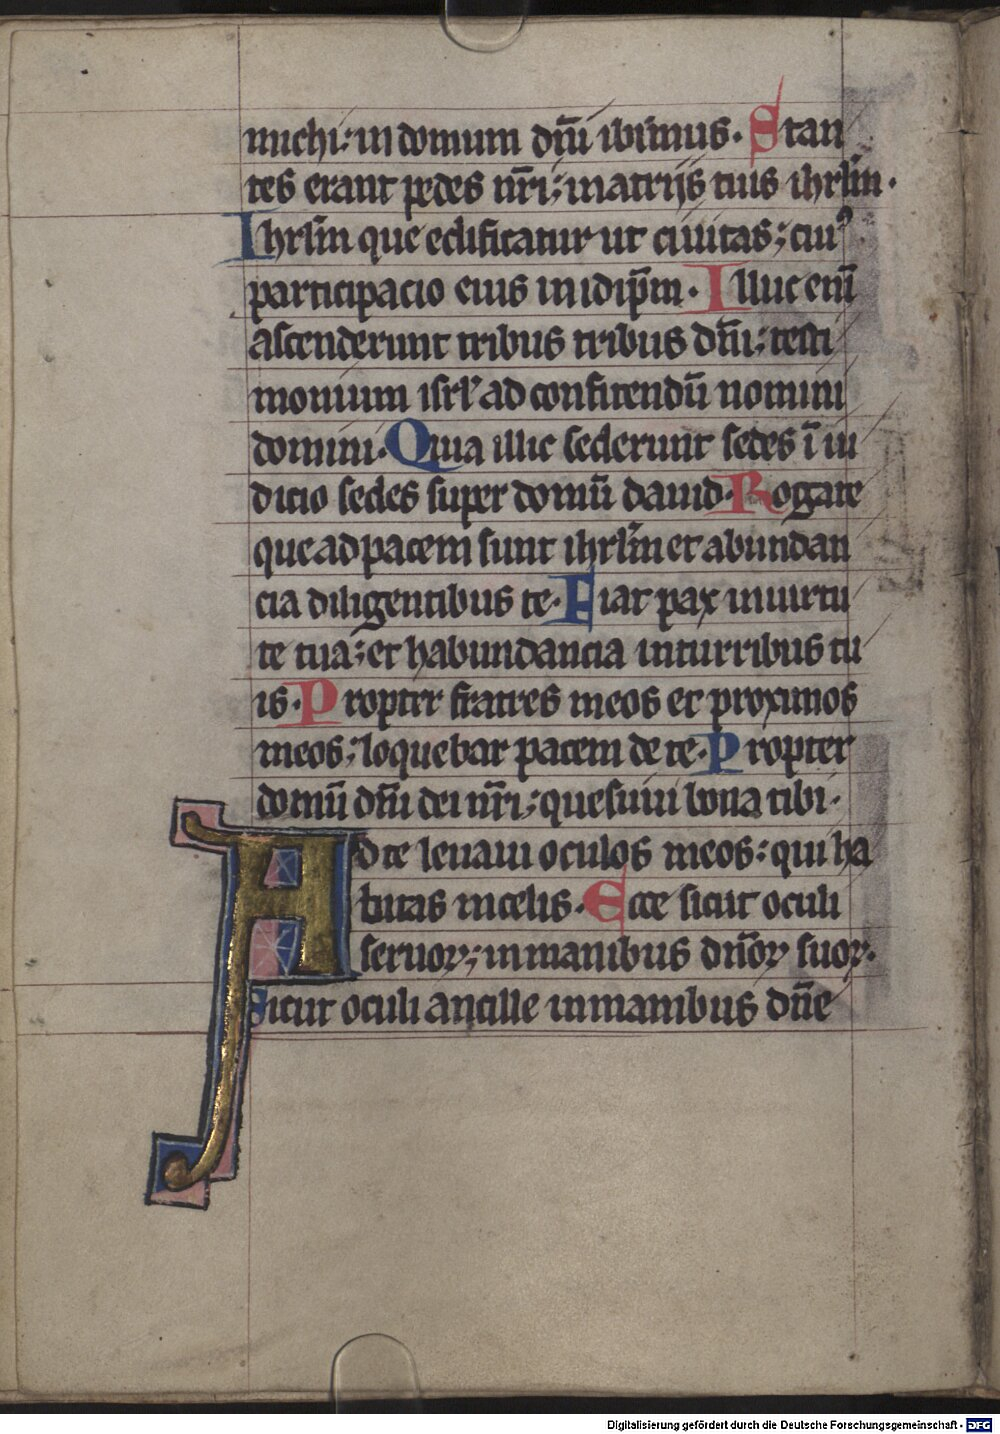 michi: in domum dn̄i ibimus. Stan
tes erant pedes nr̄i; in atrijs tuis ihrlm̄.
Ihrlm̄ que edificatur ut ciuitas; cuiꝰ
participacio eius in idip̄m. Illuc eni̅
ascenderunt tribus tribus dn̄i; testi
monium isrl' ad confitendū nomini
domini. Quia illic sederunt sedes ī iu
dicio sedes super domū dauid. Rogate
que ad pacem sunt ihrlm̄ et abundan
cia diligentibus te. Fiat pax in uirtu
te tua: et habundancia in turribus tu
is. Propter fratres meos et proximos
meos; loquebar pacem de te. Propter
domū dn̄i dei nr̄i; quesiuui bona tibi.
Ad te leuaui oculos meos: qui ha
bitas in celis. Ecce sicut oculi
seruoꝝ; in manibus dn̄oꝝ suoꝝ.
Sicut oculi ancille in manibus dn̄e
Digitalisierung gefördert durch die Deutsche Forschungsgemeinschaft - DFG